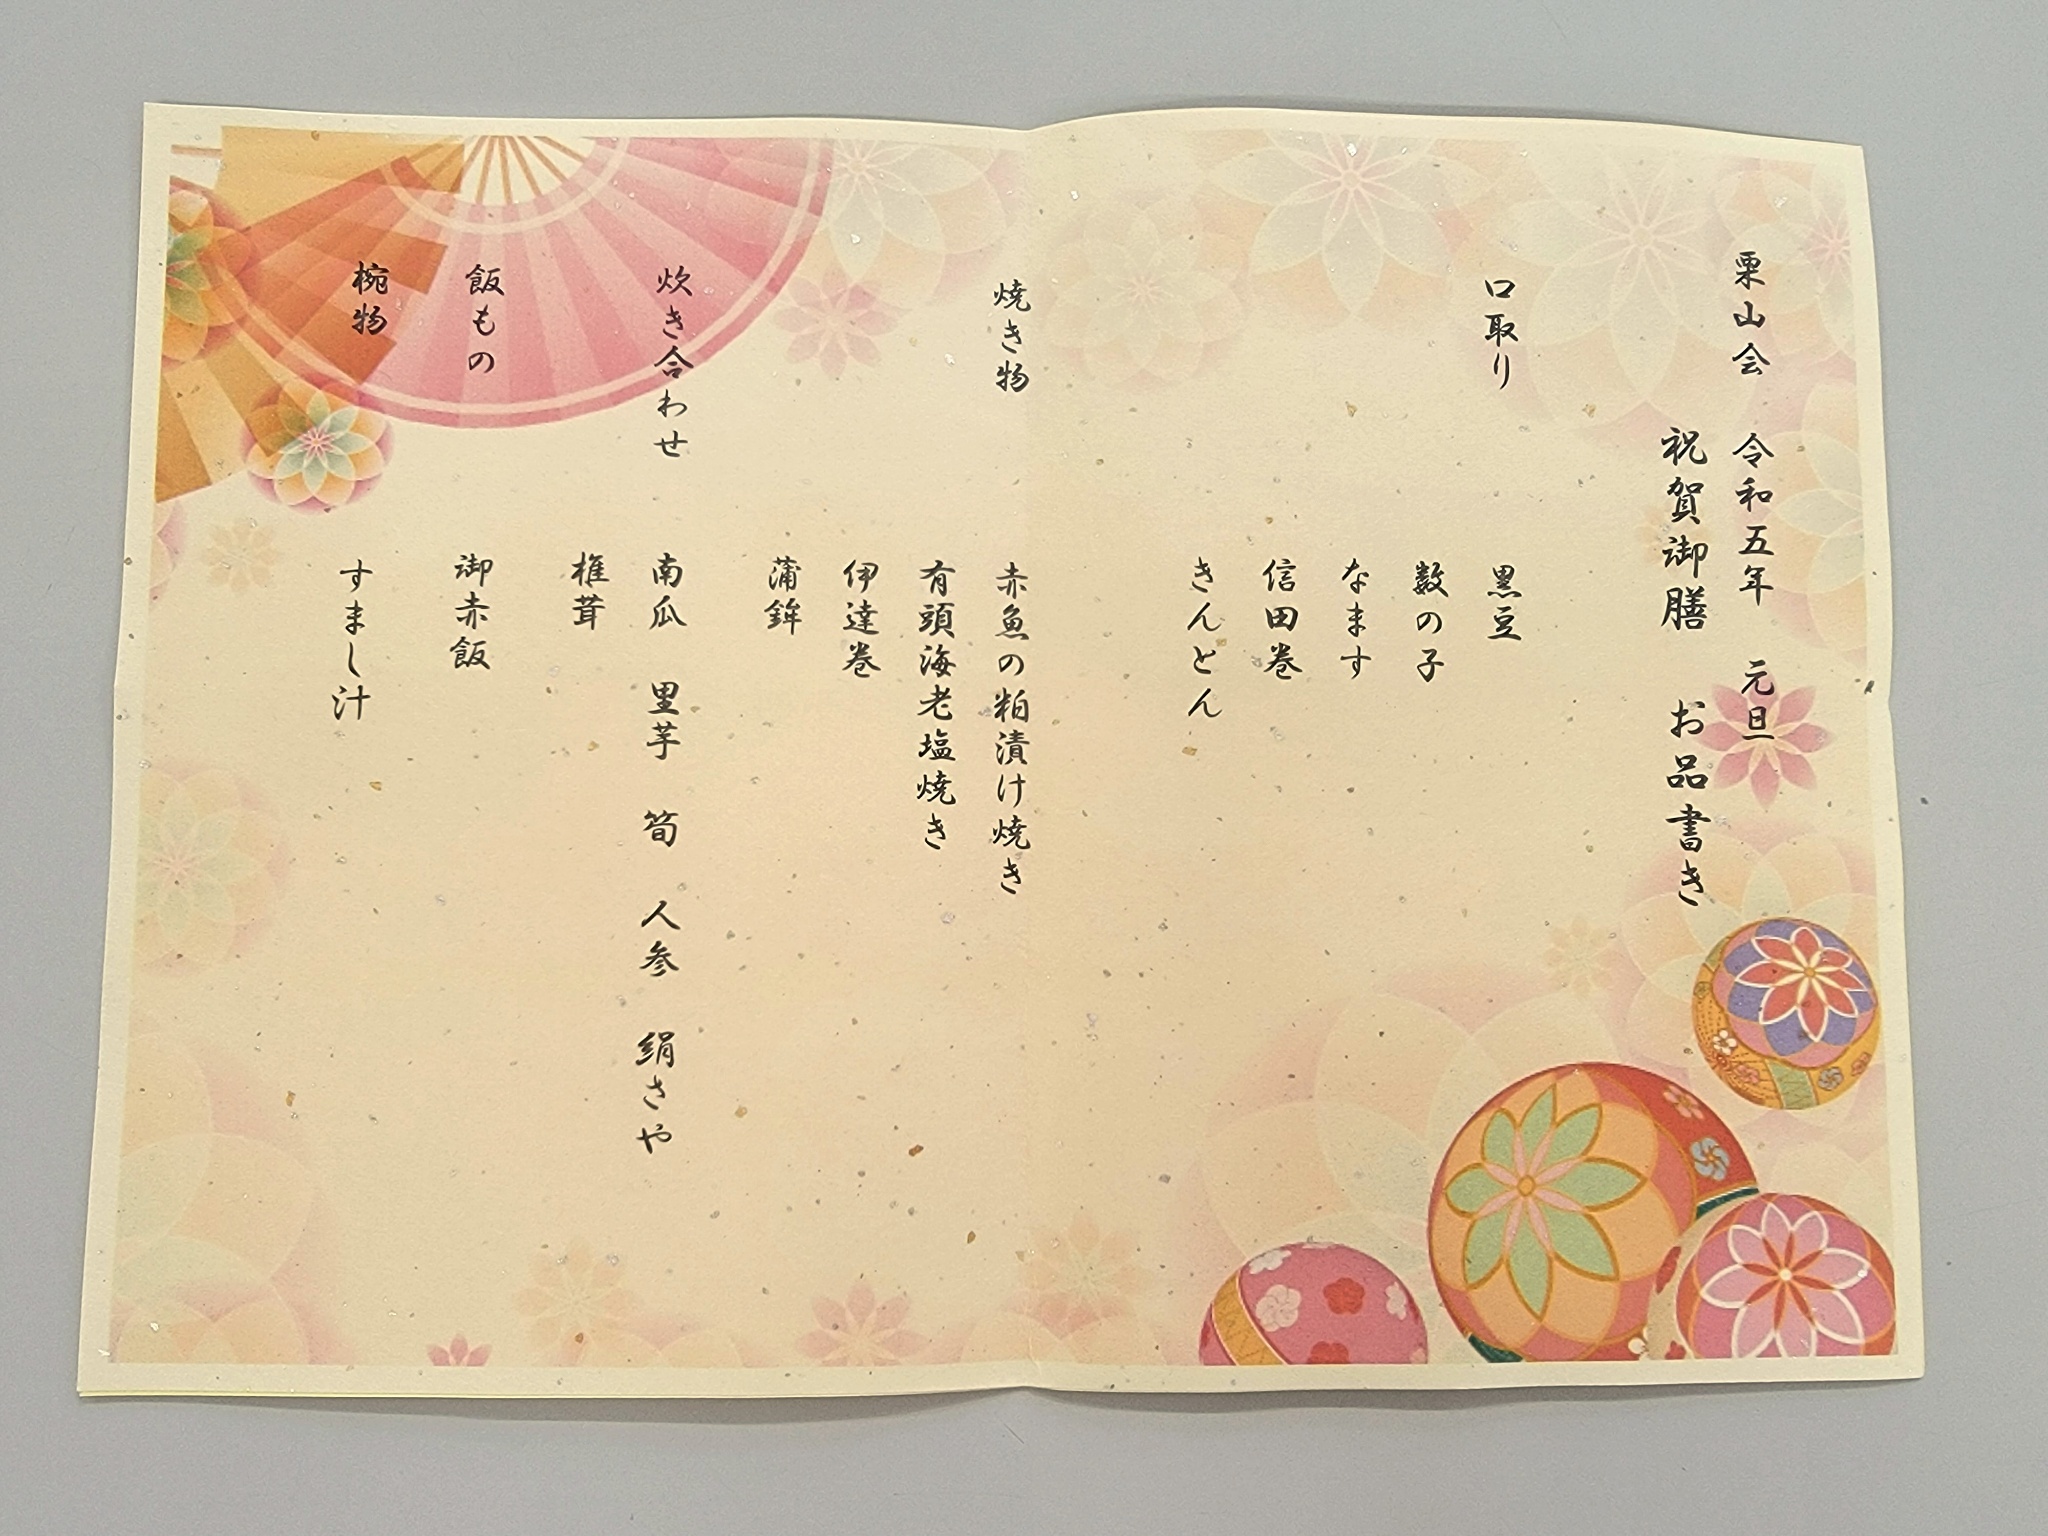 栗山会　令和五年　元旦
祝賀御膳　お品書き
口取り
黒豆
数の子
なます
信田巻
きんとん
焼き物
赤魚の粕漬け焼き
有頭海老塩焼き
伊達巻
蒲鉾
炊き合わせ
南瓜　里芋　筍　人参　絹さや
椎茸
飯もの
御赤飯
椀物
すまし汁